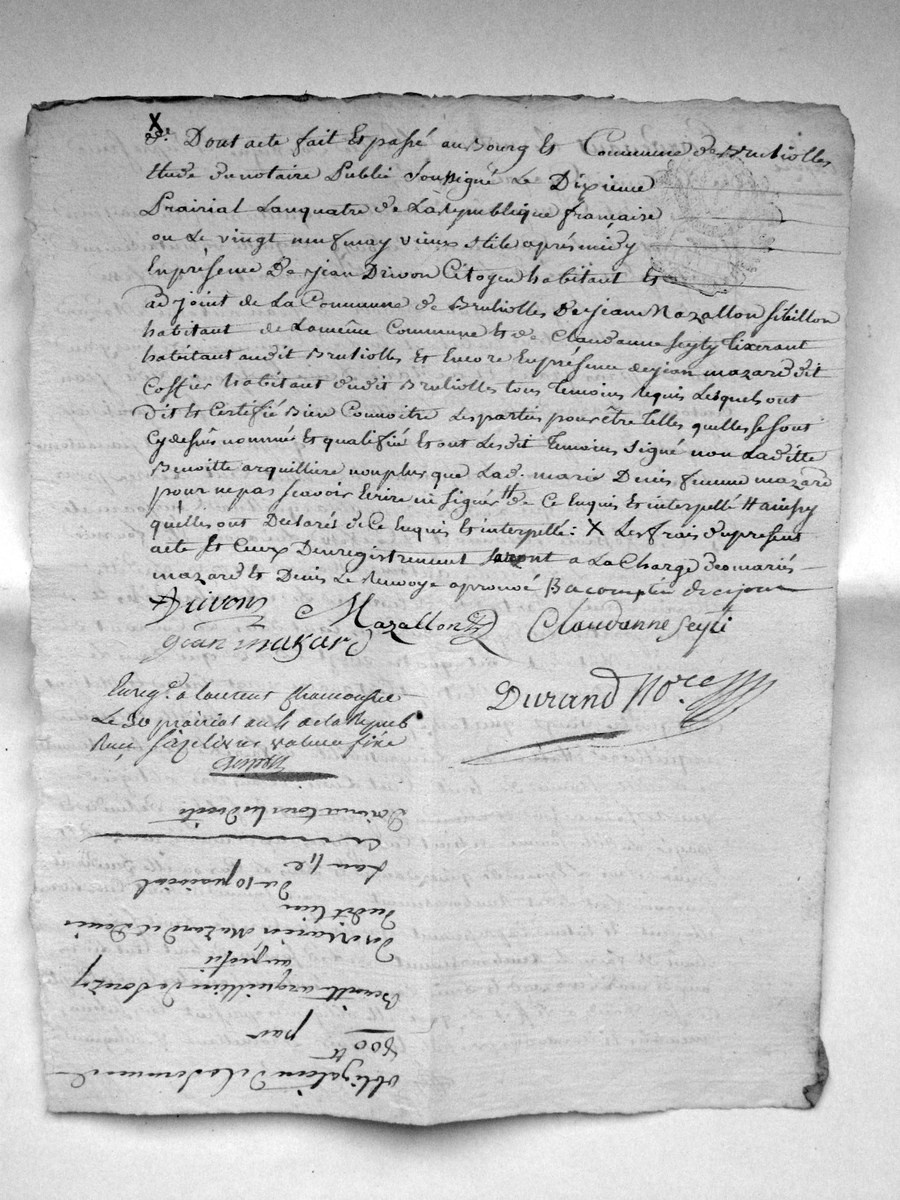 X
d. Dont acte fait Et passé au Bourg Et Commune de Brulliolles
Etude du notaire Public Soussigné Le Dixieme
Prairial L'an quatre de La république française
ou Le vingt neuf may vieux stile après midy
En présence De Jean Drivon Citoyen habitant Et
adjoint de La Commune de Brulliolles De Jean Mazallon Sibillon
habitant de La même Commune Et de Claudanne Seyty tixerant
habitant audit Brulliolles Et Encore En présence de Jean mazard dit
habitant dudit Brulliolles tous Temoins Requis Lesquels ont
Dit Et Certifié Bien Connoitre Les parties pour être Telles quelles se sont
Cy dessus nommé Et qualifié Et ont Lesdit Temoins signé non Laditte
Benoitte arquilliere non plus que Lad. marie Denis femme mazard
pour ne pas scavoir Ecrire ni signer de Ce Enquis Et interpellé
qu'elles ont Declarés de Ce Enquis Et interpellé: X Les frais du présent
acte Et Ceux D'enregistrement seront a La Charge des mariés
mazard Et Denis Le Renvoye aprouvé
Drivon Mazallon Claudanne Seyti
jean masard
Durand Nore
Enregé. a Laurent Chamousset
Le 30 prairial an 4 de la Repub
Reçu livres valeur fixe
obligation de la somme de
800 tt
par
Benoitte arquilliere de Souzy
au profit
des Mariés Mazard et Denis
dudit lieu
du 10 prairial
l'an 4e